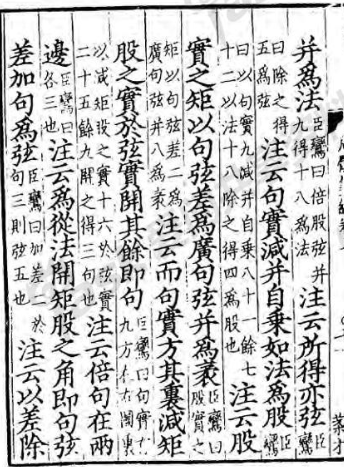 并爲法臣鸞曰倍股弦并九得十八爲法注云所得亦弦臣鸞
曰除之得五爲弦注云句實減并自乘如法爲股臣鸞
曰以句實九減并自乘八十一餘七十二以法十八除之得四爲股也注云股
實之矩以句弦差爲廣句弦并爲袤臣鸞曰股實之
矩以句弦差二爲廣句弦并八爲袤注云而句實方其裏減矩
股之實於弦實開其餘即句臣鸞曰句實九方在
以減矩股之實十六於弦實二十五餘九開之得三句也注云倍句在兩
邊臣鸞曰各三也注云爲從法開矩股之角即句弦
差加句爲弦臣鸞曰加差二於句三則弦五也注云以差除